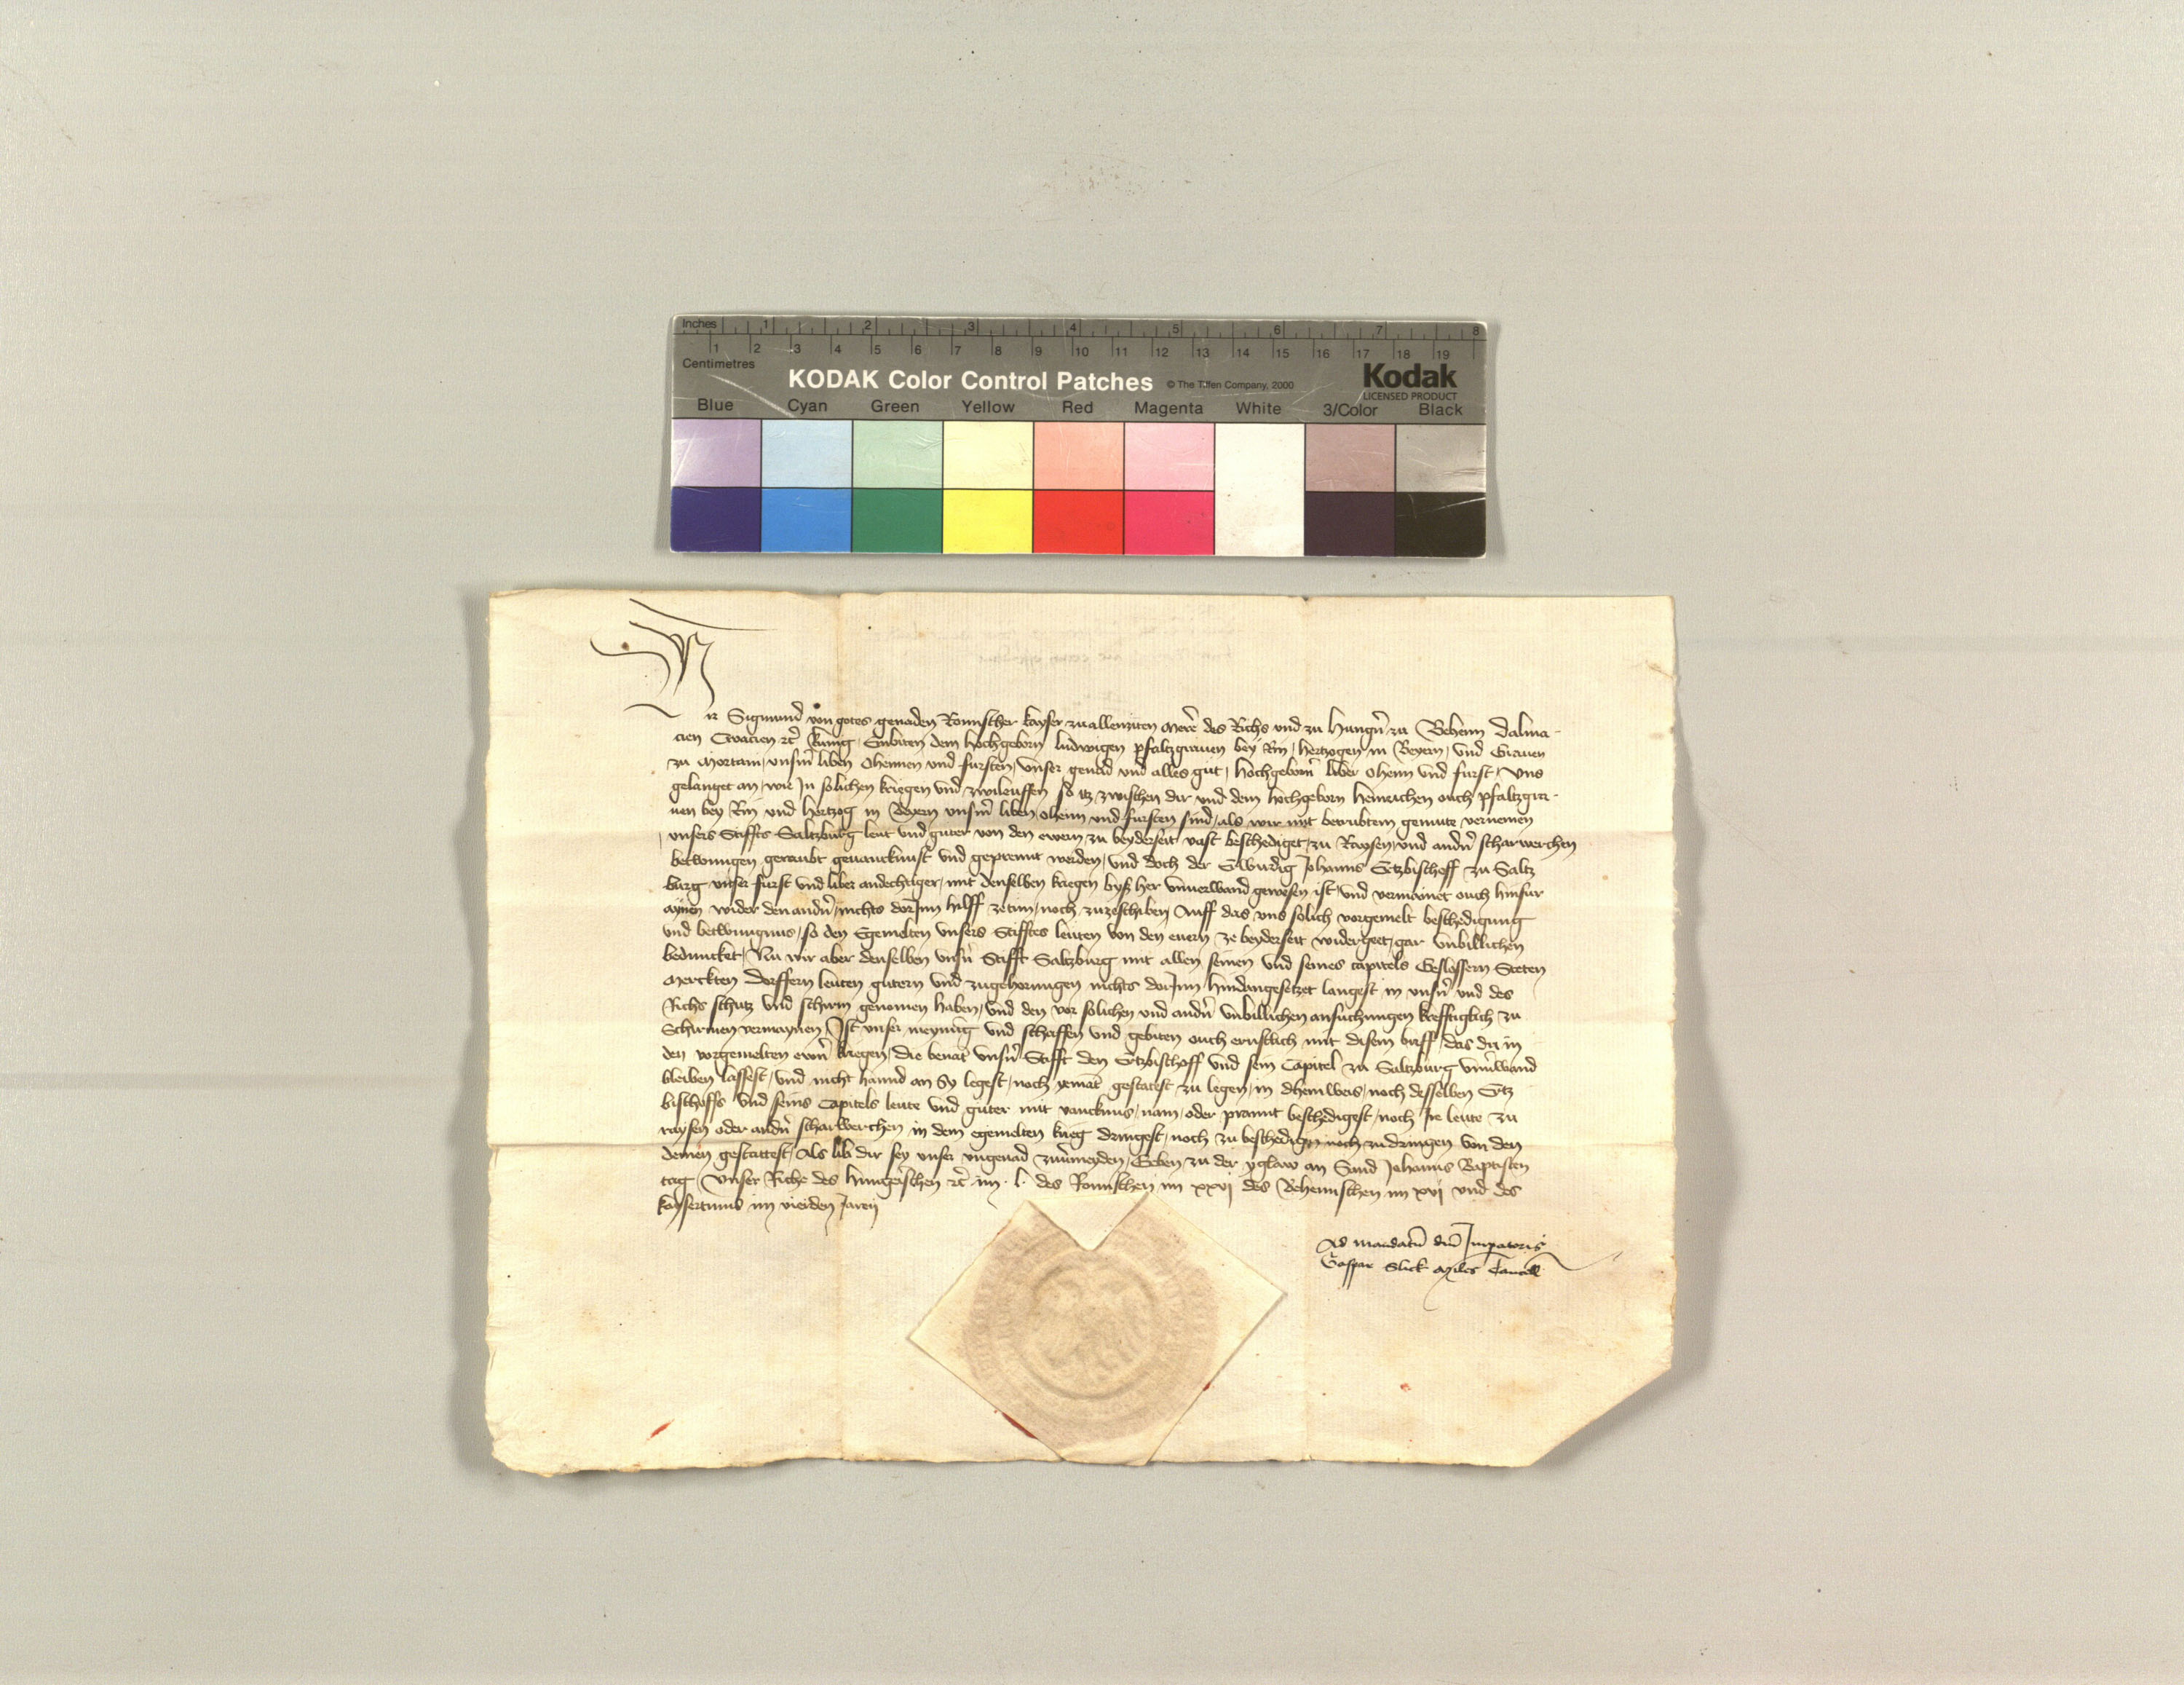 Inches 1 2 3 4 5 6 7 8
1 2 3 4 5 6 7 8 9 10 11 12 13 14 15 16 17 18 19
Centimetres
KODAK Color Control Patches © The Tiffen Company, 2000 Kodak
LICENSED PRODUCT
Blue Cyan Green Yellow Red Magenta White 3/Color Black
Wir Sigmund von gotes genaden Romischer keyser zuallenziten Merer des Richs und zu Hungern zu Behem Dalma-
cien Croacien etc kunig Embieten dem hochgeborn ludwigen pfaltzgrauen bey Rin hertzogen in Beyern und Grauen
zu Mortani unserm liben Ohemen und fursten unser genad und alles gut hochgeborner liber Ohem und furst uns
gelanget an wie In solichen kriegen und zwileuffen so itz zwischen dir und dem hochgeborn heinrichen ouch pfaltzgra-
uen bey Rin und hertzog in Beyern unserm liben oheim und fursten sind als wir mit betrubtem gemute vernemen
unsers Stiffts Saltzburg leut und guter von den ewern zu beyderseit vast beschediget zu Raysen und andern scharwerchen
betwungen geraubt geuancknust und geprennt werden und doch der Erwirdig Johanns Ertzbischoff zu Saltz
burg unser furst und liber andechtiger mit denselben kriegen byß her unuerwand gewesen ist und vermainet ouch hinfur
aynen wider den andern nichts dorInn hilff zetun noch zuzeschiben Auff das uns solich vorgemelt beschedigung
und betwungnus so den Egemelten unsers Stifftes leuten von den euern ze beyderseit widergeet gar unbillichen
beduncket Nu wir aber denselben unsern Stifft Saltzburg mit allen seinen und seines capitels Geslossern Steten
Merckten Dorffern leuten gutern und zugehorungen nichts dorInn hindangesetzet langest in unsern und des
Richs schutz und schirm genomen haben und den vor solichen und andern unbillichen ansuchungen krefftiglich zu
Schirmen vermaynen Ist unser meynung und schaffen und gebiten ouch ernstlich mit disem briff das du in
den vorgemelten ewern kriegen die benanten unsern Stifft den Ertzbischoff und sein Capitel zu Saltzburg unuerwand
bleiben lassest und nicht hannd an Sy legest noch yemant gestatest zu legen in dhein weis noch desselben Ertz
bischoffs und seins Capitels leute und guter mit vancknus nam oder prannt beschedigest noch Ire leute zu
raysen oder andern scharwerchen in dem egemelten krieg dringest noch zu beschedigen noch zudringen von den
deinen gestattest Als lib dir sey unser ungenad zuuermeyden Geben zu der yglaw an Sand Johanns Baptisten
tag Unser Riche des hungerischen etc im l des Romischen im xxvi des Behemischen im xvi und des
keysertumbs im vierden Jaren
Ad mandatum domini Imperatoris
Caspar Slick Miles Cancell